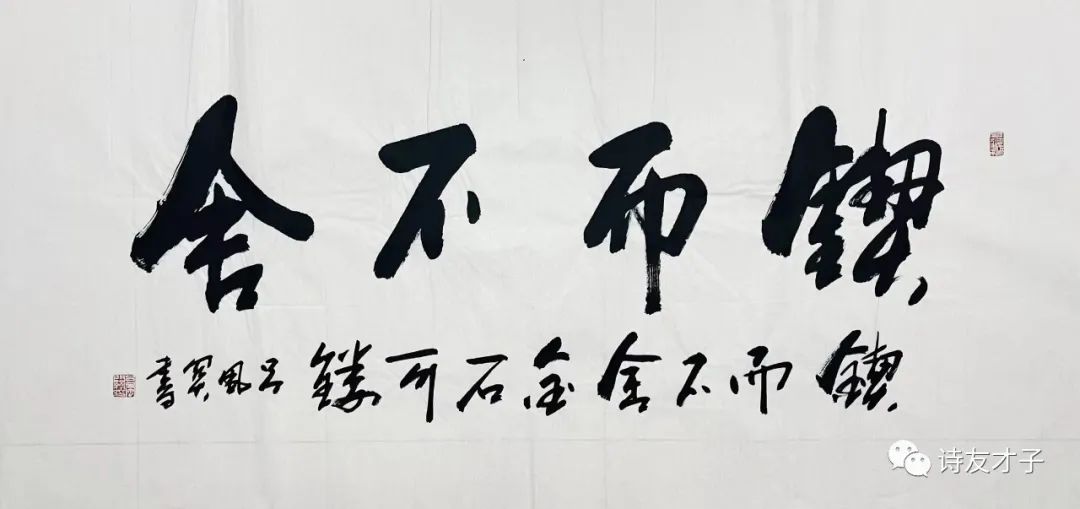 锲而不舍
锲而不舍金石可镂吕风奠书
诗友才子